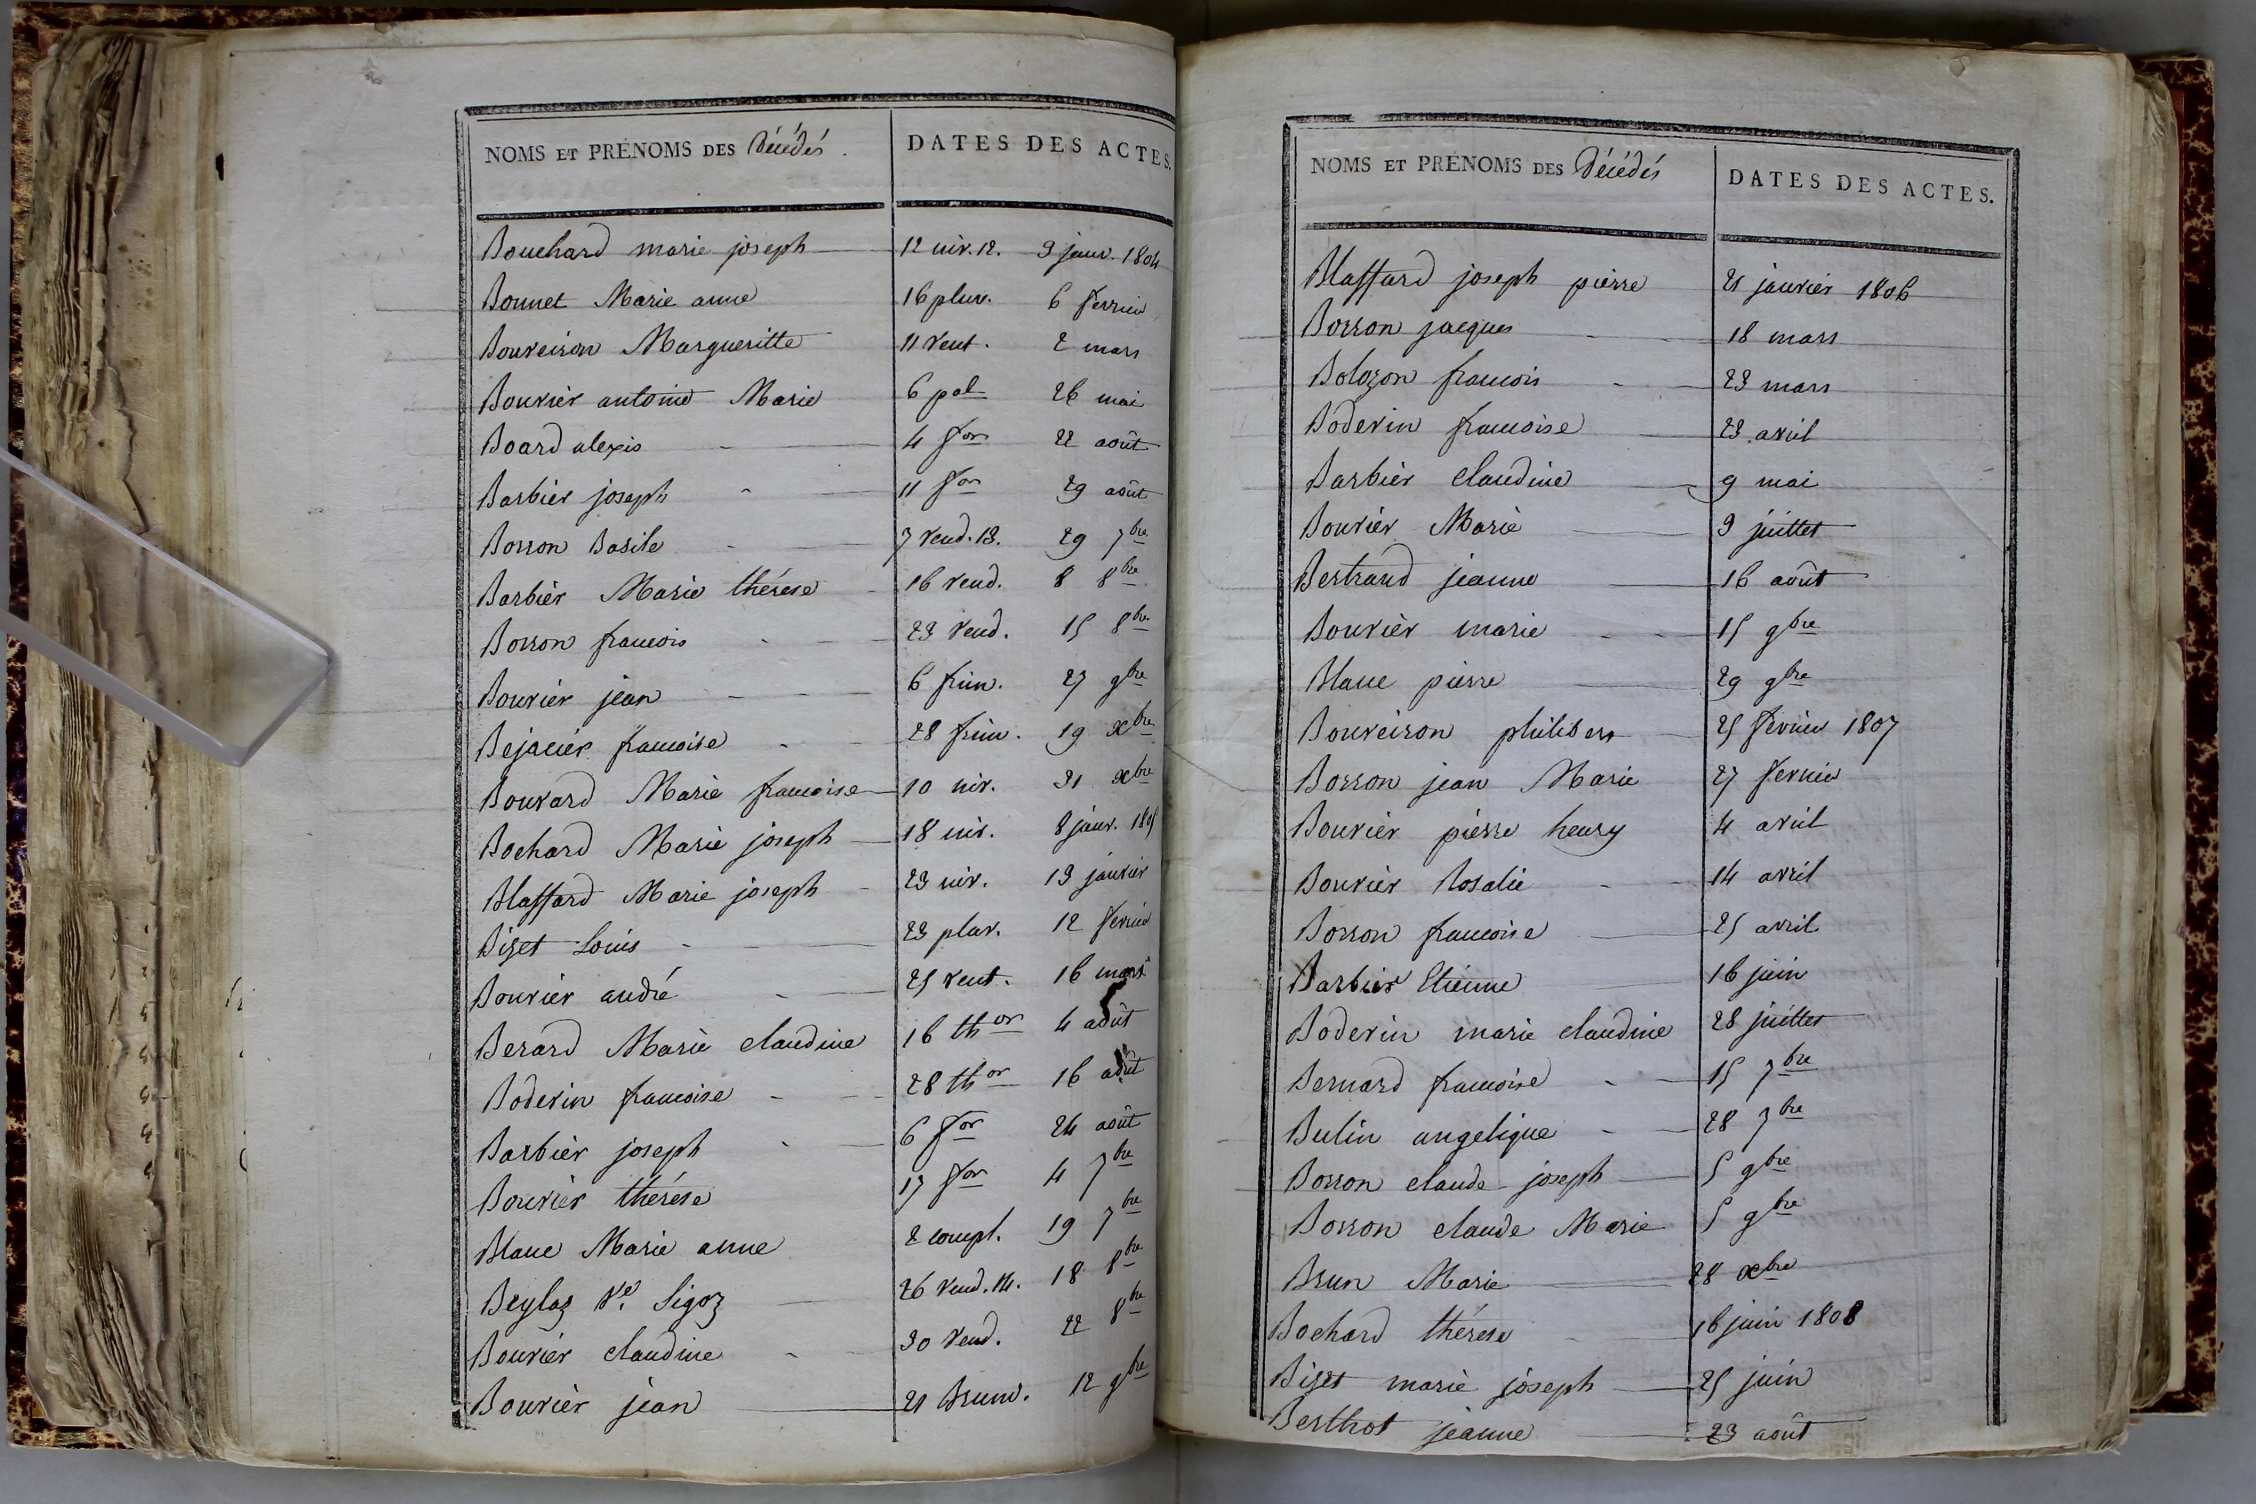 NOMS ET PRÉNOMS DES Décédés.
DATES DES ACTES.
Bouchard marie joseph 12 niv. 12. 3 janv. 1804
Bonnet Marie anne 16 pluv. 6 fevrier
Bouveiron Margueritte 11 vent. 2 mars
Bouvier antoine Marie 6 pal 26 mai
Board alexis 4 for 22 août
Barbier joseph 11 for 29 août
Borron Basile 7 vend. 13. 29 7bre
Barbier Marie thérese 16 vend. 8 8bre
Borron francois 23 vend. 15 8bre
Bouvier jean 6 frim. 27 9bre
Bejacier francoise 28 frim. 19 xbre
Bouvard Marie francoise 10 niv. 31 xbre
Bochard Marie joseph 18 niv. 8 janv. 1805
Blaffard Marie joseph 23 niv. 13 janvier
Bizet Louis 23 pluv. 12 fevrier
Bouvier andré 25 vent. 16 mars
Berard Marie claudine 16 thor 4 août
Boderin francoise 28 thor 16 août
Barbier joseph 6 for 24 août
Bouvier thérese 17 for 4 7bre
Blanc Marie anne 2 compl. 19 7bre
Beylaz ve. Sigoz 26 vend. 14. 18 8bre
Bouvier claudine 30 vend. 22 8bre
Bouvier jean 21 brum. 12 9bre
NOMS ET PRÉNOMS DES Décédés
DATES DES ACTES.
Blaffard joseph pierre 21 janvier 1806
Borron jacques 18 mars
Bolozon francois 23 mars
Boderin francoise 23 avril
Barbier claudine 9 mai
Bouvier Marie 3 juillet
Bertrand jeanne 16 août
Bouvier marie 15 9bre
Blanc pierre 29 9bre
Bouveiron philibert 25 fevrier 1807
Borron jean Marie 27 fevrier
Bouvier pierre henry 4 avril
Bouvier Rosalie 14 avril
Borron francoise 25 avril
Barbier Etienne 16 juin
Boderin marie claudine 28 juillet
Bernard francoise 15 7bre
Bulin angelique 28 7bre
Borron claude joseph 5 9bre
Borron claude Marie 5 9bre
Brun Marie 28 xbre
Bochard thérese 16 juin 1808
Bizet marie joseph 25 juin
Berthot jeanne 23 août